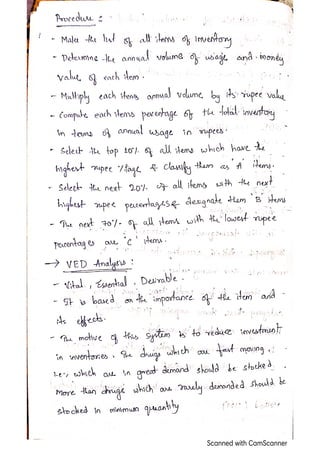 Procedure :
- Make the list of all items of inventory
- Determine the annual volume of usage and money
value of each item.
- Multiply each items annual volume by its rupee value
- Compute each items percentage of the total inventory
in terms of annual usage in rupees.
- Select the top 10% of all items which have the
highest rupee %age & classify them as 'A' items.
- Select the next 20% of all items with the next
highest rupee percentages & designate them 'B' items
- The next 70% of all items with the lowest rupee
percentages are 'C' items.
→ VED Analysis :
- Vital, Essential, Desirable.
- It is based on the importance of the item and
its effects.
- The motive of this system is to reduce investment
in inventories. The drugs which are fast moving,
i.e., which are in great demand should be stocked
more than drugs which are rarely demanded should be
stocked in minimum quantity
Scanned with CamScanner